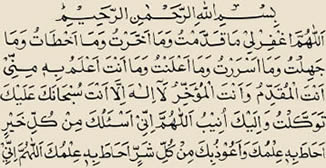 بِسْمِ اللهِ الرَّحْمٰنِ الرَّحِيْمِ
اَللّٰهُمَّ اغْفِرْلِيْ مَا قَدَّمْتُ وَمَا اَخَّرْتُ وَمَا اَخْطَأْتُ وَمَا
جَهِلْتُ وَمَا اَسْرَرْتُ وَمَا اَعْلَنْتُ وَمَا اَنْتَ اَعْلَمُ بِهِ مِنِّيْ
اَنْتَ الْمُقَدِّمُ وَاَنْتَ الْمُؤَخِّرُ لَا اِلٰهَ اِلَّا اَنْتَ سُبْحَانَكَ عَلَيْكَ
تَوَكَّلْتُ وَاِلَيْكَ اُنِيْبُ اَللّٰهُمَّ اِنِّيْ اَسْئَلُكَ مِنْ كُلِّ خَيْرٍ
اَحَاطَ بِهِ عِلْمُكَ وَاَعُوْذُ بِكَ مِنْ كُلِّ شَرٍّ اَحَاطَ بِهِ عِلْمُكَ اَللّٰهُمَّ اِنِّيْ